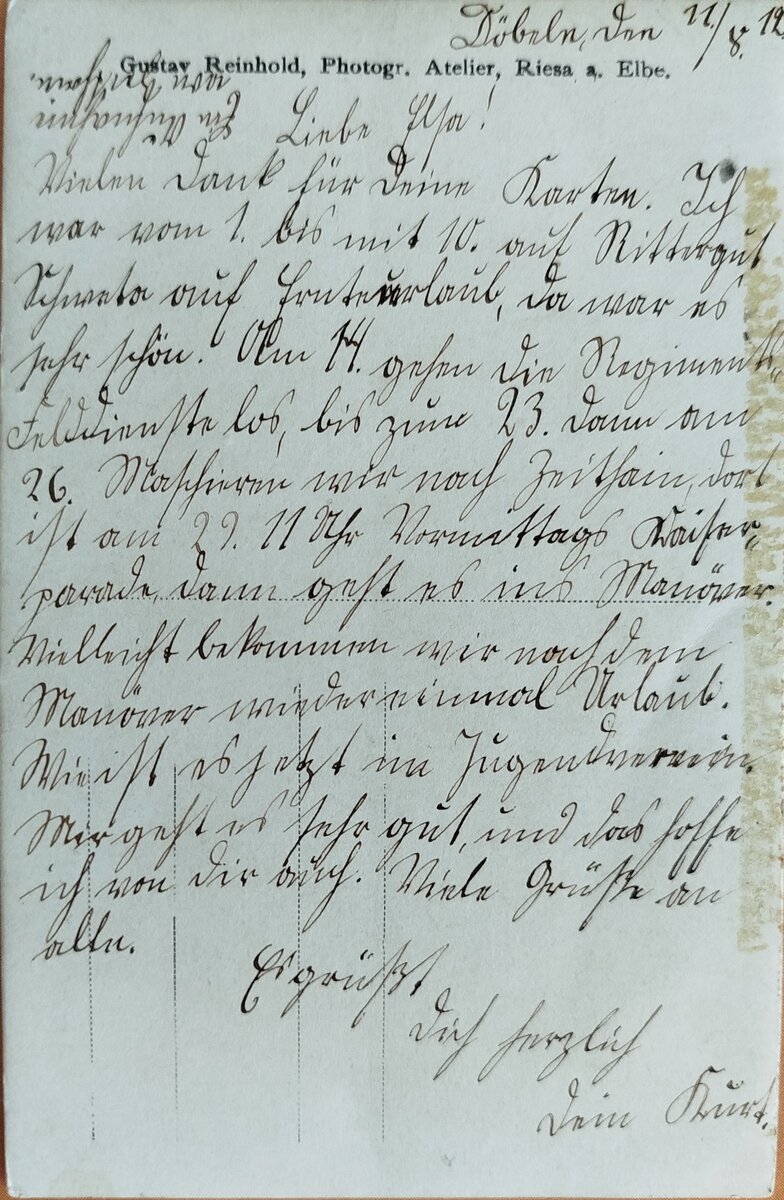 Döbeln, den 11/8. 12.
Gustav Reinhold, Photogr. Atelier, Riesa a. Elbe.
Liebe Elsa!
Vielen Dank für Deine Karten. Ich
war vom 1. bis mit 10. auf Rittergut
Schweta auf Ernteurlaub, da war es
sehr schön. Am 14. gehen die Regiments-
Felddienste los, bis zum 23. dann am
26. Maschieren wir nach Zeithain, dort
ist am 29. 11 Uhr Vormittags Kaiser-
parade, dann geht es ins Manöver.
Vielleicht bekommen wir nach dem
Manöver wiedereinmal Urlaub.
Wie ist es jetzt im Jugendverein.
Mir geht es sehr gut, und das hoffe
ich von dir auch. Viele Grüße an
alle.
Es grüßt
Dich herzlich
Dein Kurt.